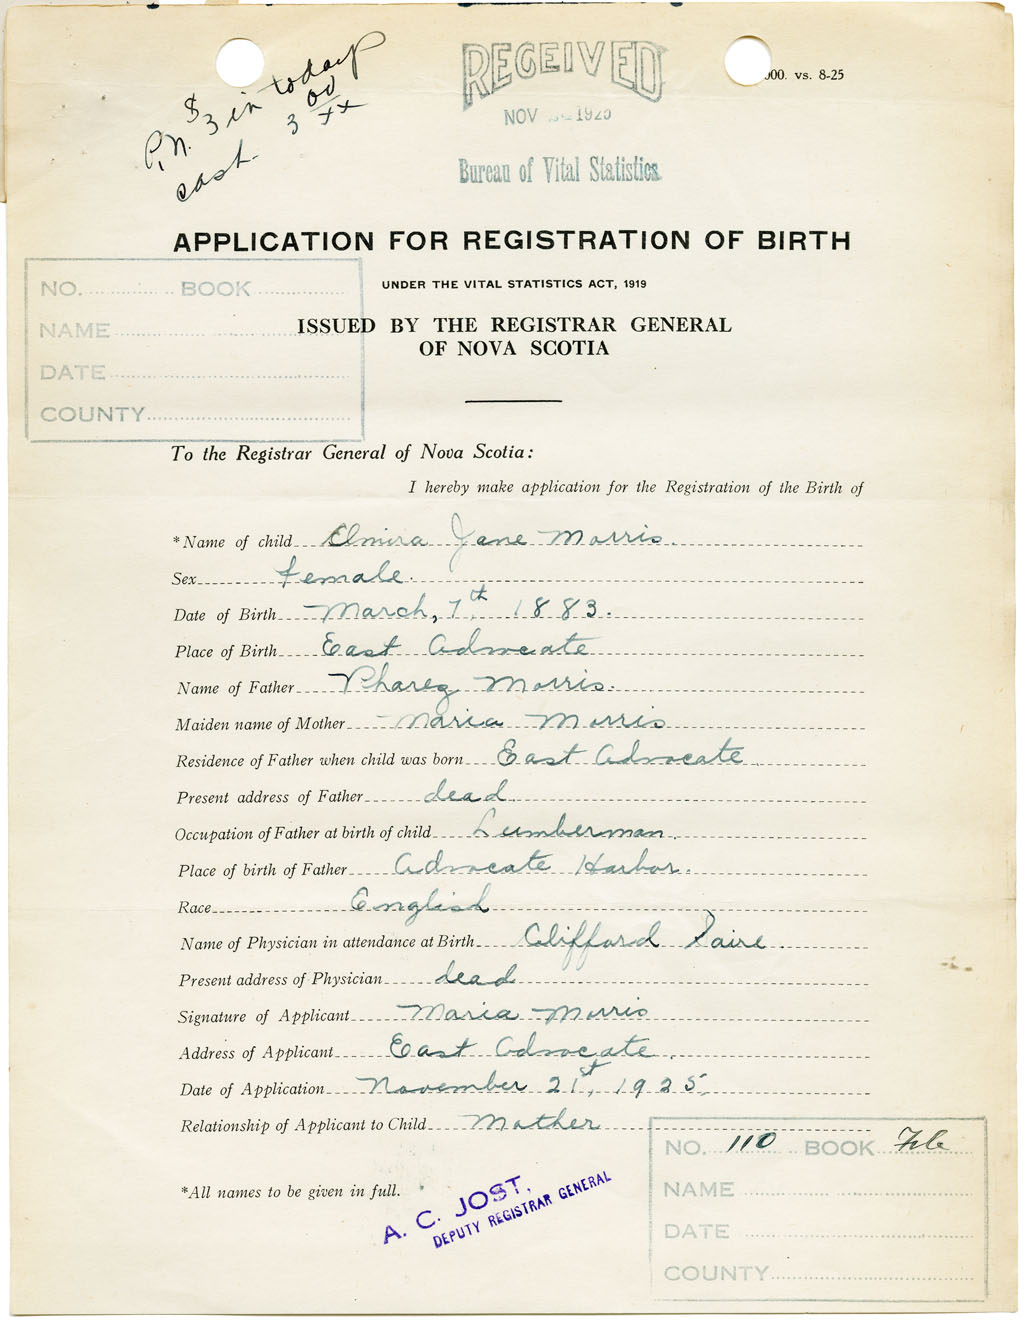 P.N. $3 in today
cash. 3 00
xx
RECEIVED
NOV 1925
Bureau of Vital Statistics
000. vs. 8-25
APPLICATION FOR REGISTRATION OF BIRTH
UNDER THE VITAL STATISTICS ACT, 1919
ISSUED BY THE REGISTRAR GENERAL
OF NOVA SCOTIA
NO. BOOK
NAME
DATE
COUNTY
To the Registrar General of Nova Scotia:
I hereby make application for the Registration of the Birth of
*Name of child Elmira Jane Morris.
Sex female.
Date of Birth March, 7th 1883.
Place of Birth East Advocate
Name of Father Pharez Morris.
Maiden name of Mother Maria Morris
Residence of Father when child was born East Advocate.
Present address of Father dead.
Occupation of Father at birth of child Lumberman.
Place of birth of Father Advocate Harbor.
Race English
Name of Physician in attendance at Birth Clifford
Present address of Physician dead
Signature of Applicant Maria Morris
Address of Applicant East Advocate.
Date of Application November 21st, 1925.
Relationship of Applicant to Child Mother
*All names to be given in full.
A. C. JOST,
DEPUTY REGISTRAR GENERAL
NO. 110 BOOK
NAME
DATE
COUNTY